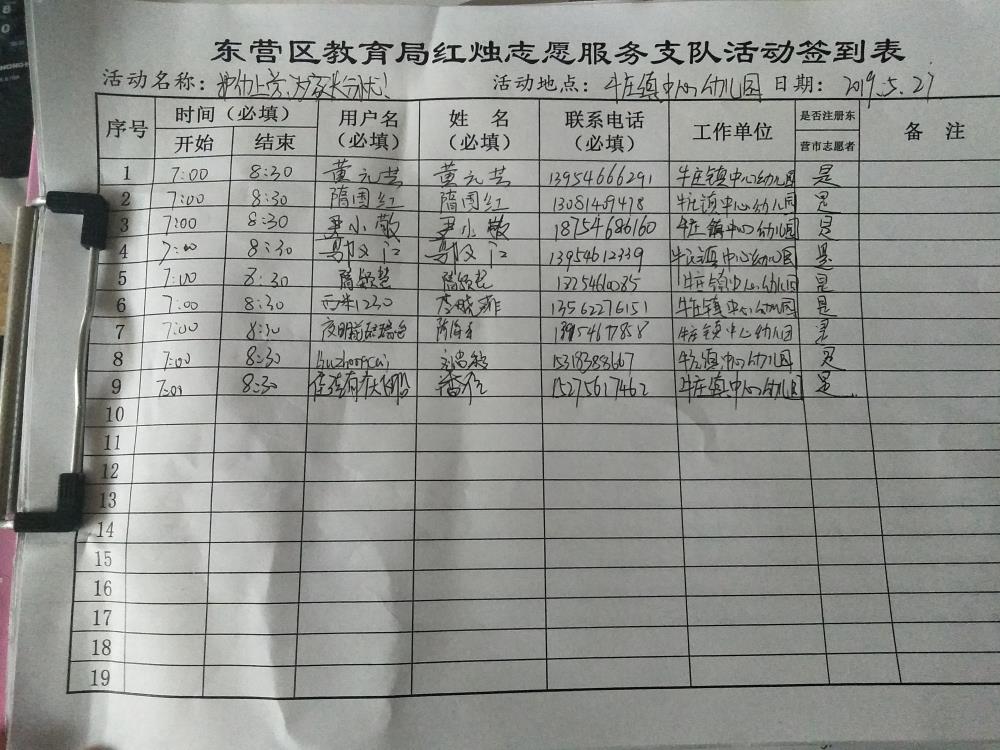 东营区教育局红烛志愿服务支队活动签到表
活动名称： 活动地点：牛庄镇中心幼儿园 日期：2019.5.27
序号 时间（必填） 用户名（必填） 姓名（必填） 联系电话（必填） 工作单位 是否注册东营市志愿者 备注
开始 结束
1 7:00 8:30 黄元芸 黄元芸 13954666291 牛庄镇中心幼儿园 是
2 7:00 8:30 隋国红 隋国红 13081469478 牛庄镇中心幼儿园 是
3 7:00 8:30 尹小敬 尹小敬 18754686160 牛庄镇中心幼儿园 是
4 7:00 8:30 13954612339 牛庄镇中心幼儿园 是
5 7:00 8:30 牛庄镇中心幼儿园 是
6 7:00 8:30 1230 李晓菲 13562276151 牛庄镇中心幼儿园 是
7 7:00 8:30 牛庄镇中心幼儿园 是
8 7:00 8:30 15318388667 牛庄镇中心幼儿园 是
9 7:00 8:30 15275617462 牛庄镇中心幼儿园 是
10
11
12
13
14
15
16
17
18
19